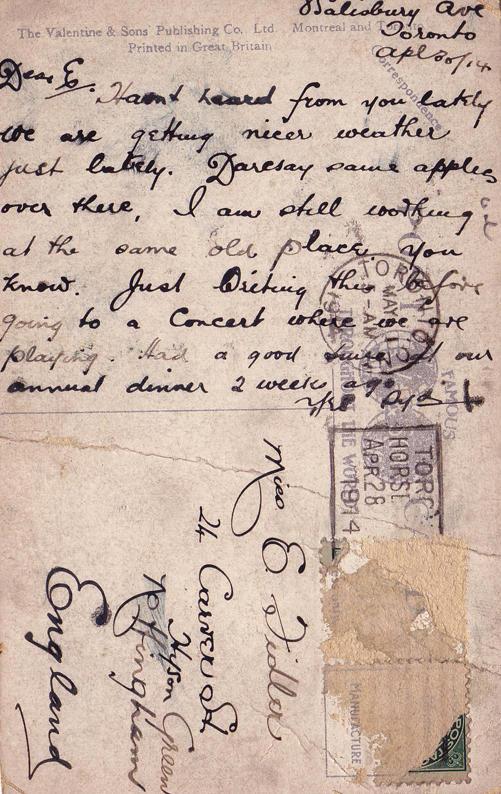 The Valentine & Sons Publishing Co. Ltd. Montreal and Toronto
Printed in Great Britain
Salisbury Ave
Toronto
Apl 30/14
Correspondence
Dear E.
Havnt heard from you lately
we are getting nicer weather
just lately. Daresay same applies
over there, I am still working
at the same old place. You
know. Just writing this before
going to a Concert where we are
playing. Had a good time at our
annual dinner 2 weeks ago
Yrs
FAMOUS
THE WORLD
TORONTO
MAY 1
AM
1914
TORO
HORS
APR 28
1914
Miss E Fidler
24 Carver St
Hyson Green
Nottingham
England
MANUFACTURE